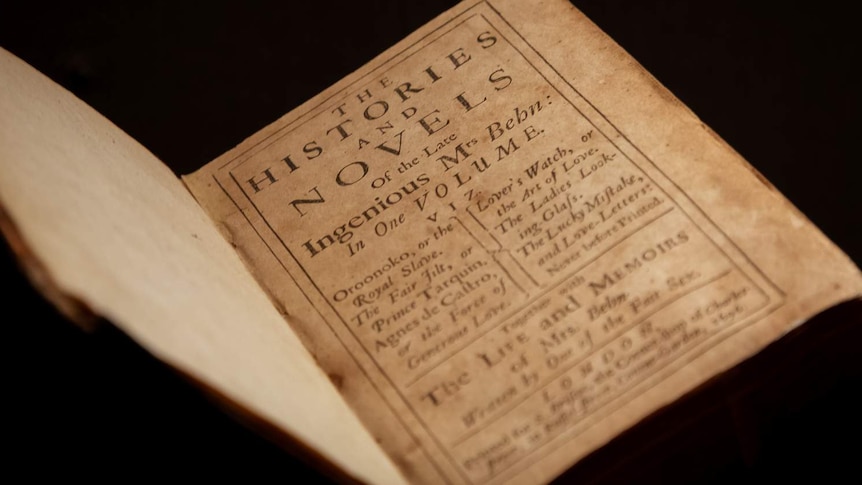 THE
HISTORIES
AND
NOVELS
Of the Late
Ingenious Mrs Behn:
In One VOLUME.
VIZ.
Oroonoko, or the
Royal Slave.
The Fair Jilt, or
Prince Tarquin.
Agnes de Castro,
or the Force of
Generous Love.
Lover's Watch, or
the Art of Love.
The Ladies Look-
ing Glass.
The Lucky Mistake,
and Love-Letters:
Never before Printed.
Together with
The LIFE and MEMOIRS
of Mrs. Behn.
Written by One of the Fair Sex.
LONDON,
Printed for S.